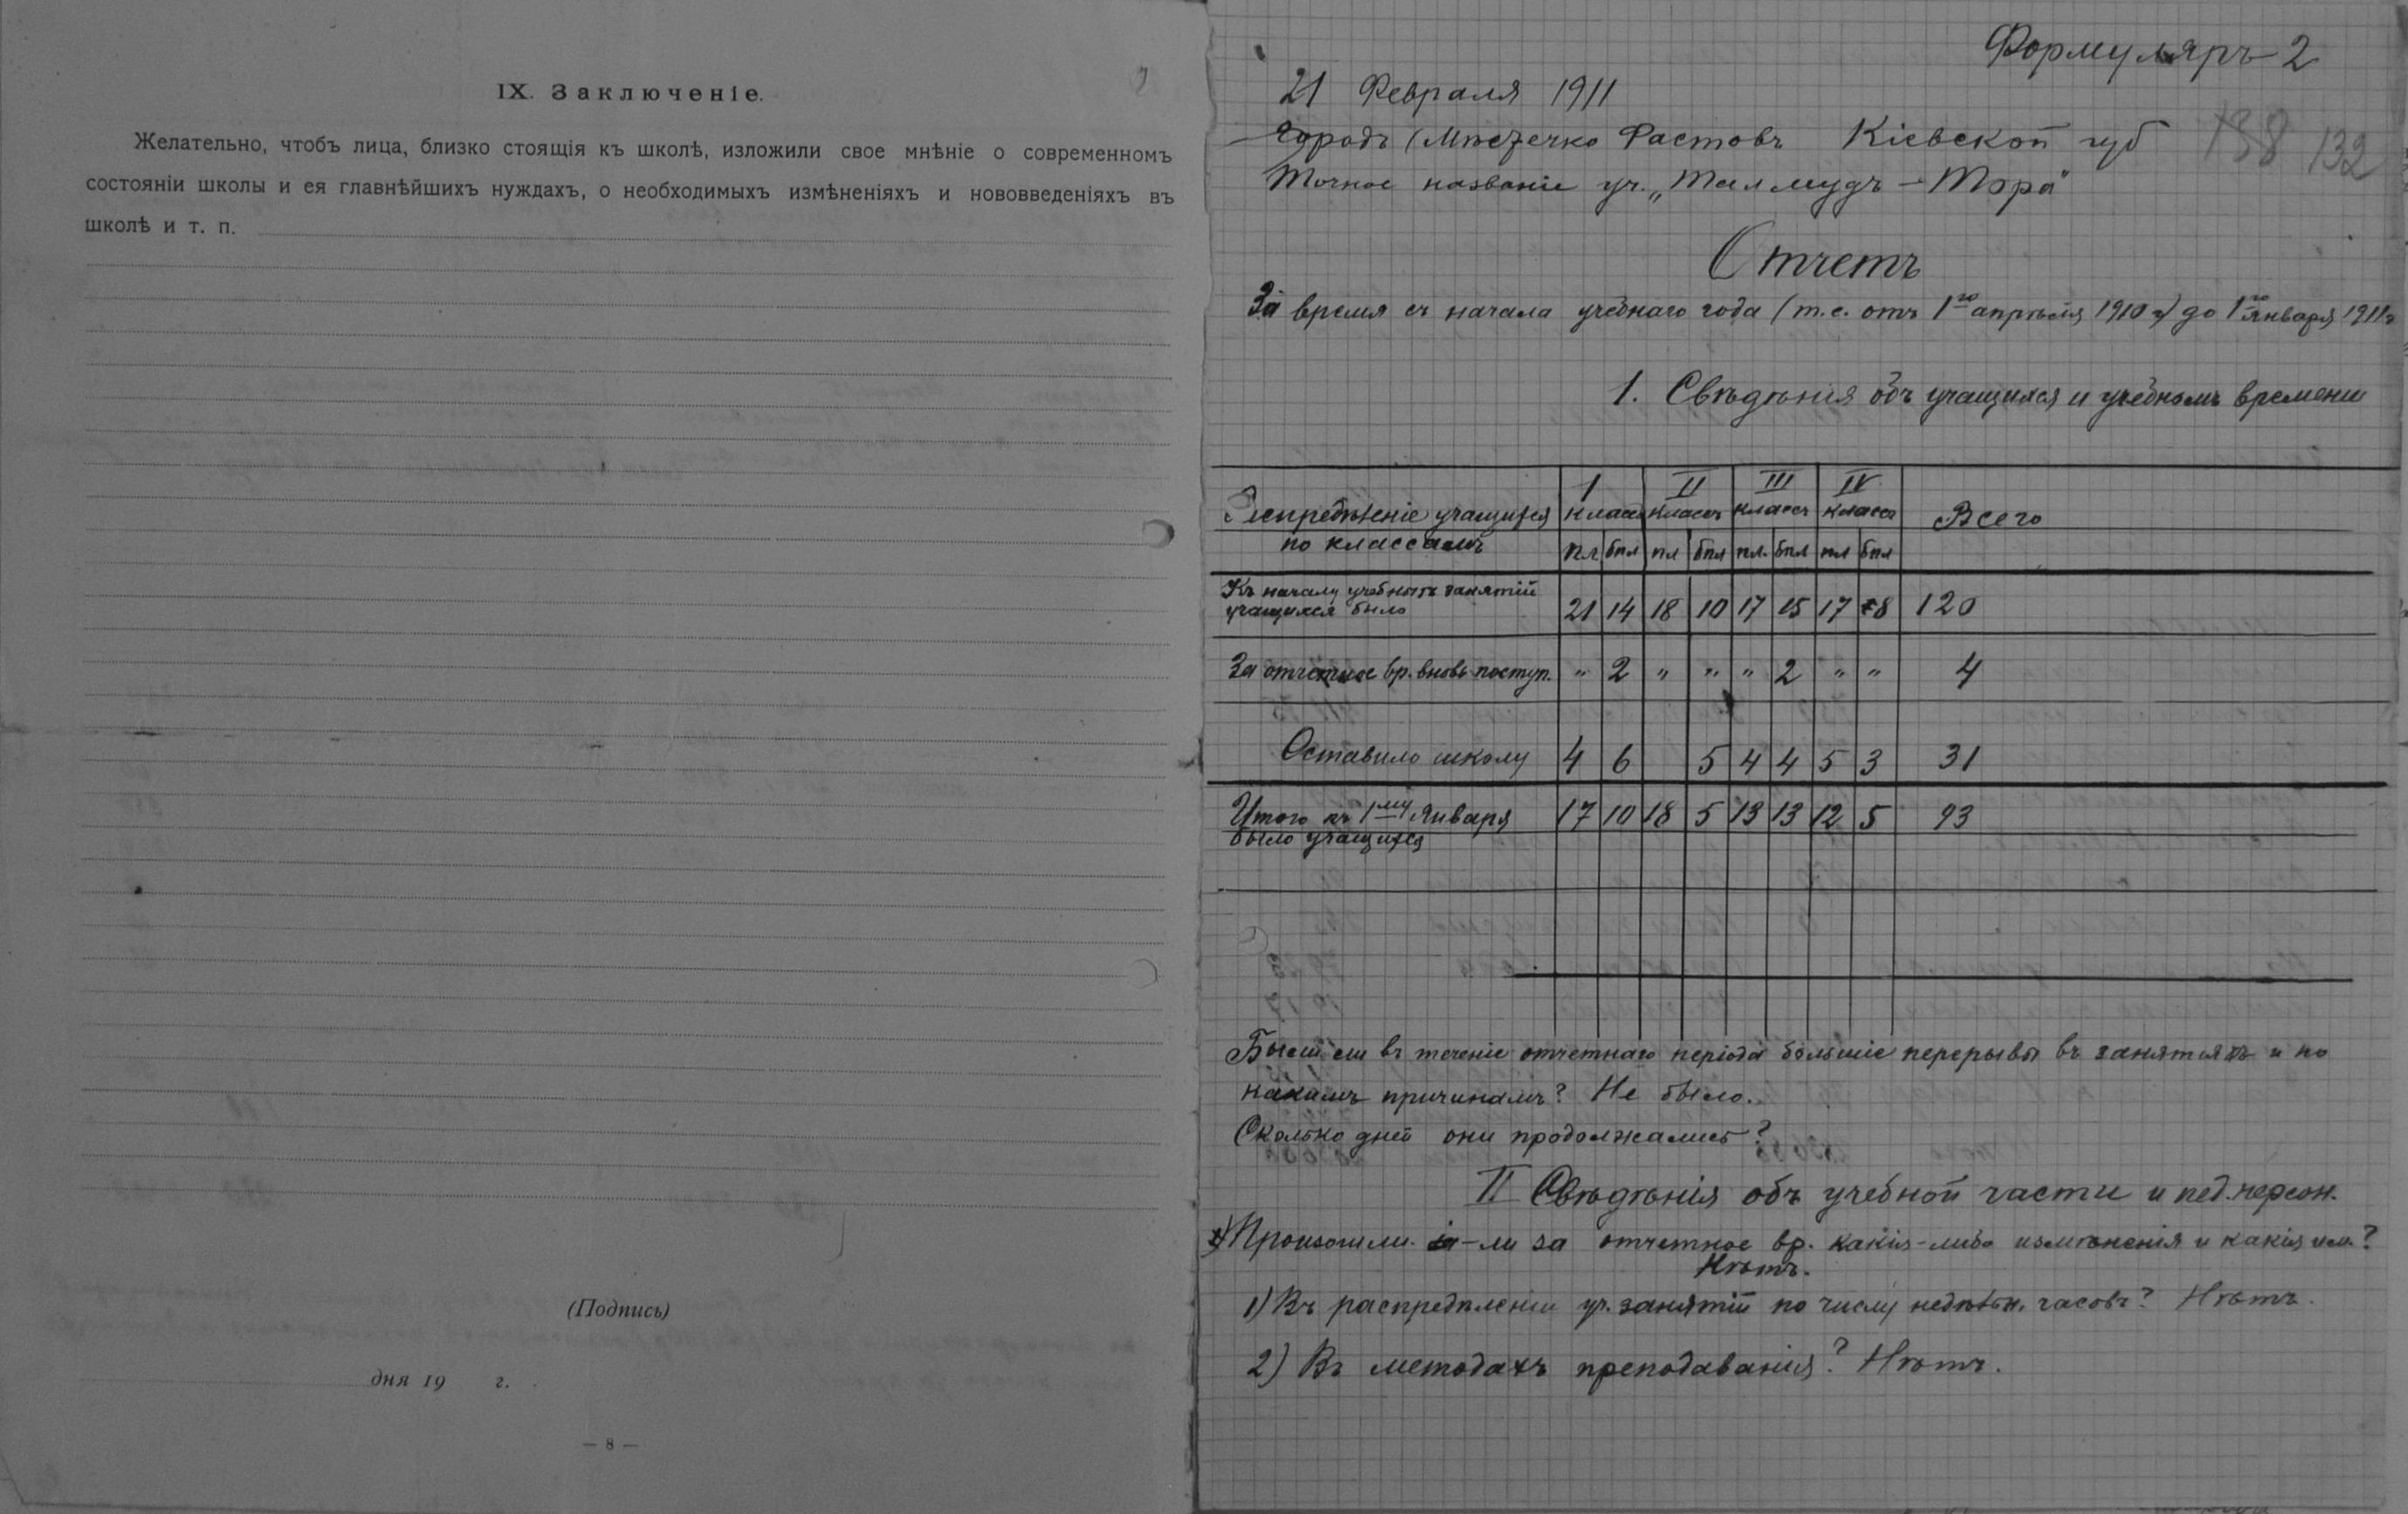 IX. Заключеніе.
Желательно, чтобъ лица, близко стоящія къ школѣ, изложили свое мнѣніе о современномъ
состояніи школы и ея главнѣйшихъ нуждахъ, о необходимыхъ измѣненіяхъ и нововведеніяхъ въ
школѣ и т. п.
(Подпись)
дня 19 г.
— 8 —
Формуляръ 2
21 Февраля 1911
Городъ (Мѣстечко Фастовъ Кіевской губ
138 132
Точное названіе уч. „Талмудъ-Тора"
Отчетъ
За время съ начала учебнаго года (т.е. отъ 1го апрѣля 1910 г) до 1го января 1911 г
1. Свѣдѣнія объ учащихся и учебномъ времени
Распредѣленіе учащихся по классамъ | I классъ | II классъ | III классъ | IV классъ | Всего
пл | бпл | пл | бпл | пл. | бпл | пл | бпл
Къ началу учебныхъ занятій учащихся было | 21 | 14 | 18 | 10 | 17 | 15 | 17 | 8 | 120
За отчетное вр. вновь поступ. | " | 2 | " | " | " | 2 | " | " | 4
Оставило школу | 4 | 6 | | 5 | 4 | 4 | 5 | 3 | 31
Итого къ 1му Января было учащихся | 17 | 10 | 18 | 5 | 13 | 13 | 12 | 5 | 93
Были ли въ теченіе отчетнаго періода большіе перерывы въ занятіяхъ и по
какимъ причинамъ? Не было.
Сколько дней они продолжались?
II Свѣдѣнія объ учебной части и пед. персон.
Произошли-ли за отчетное вр. какія-либо измѣненія и какія им.?
Нѣтъ.
1) Въ распредѣленіи уч. занятій по числу недѣльн. часовъ? Нѣтъ.
2) Въ методахъ преподаванія? Нѣтъ.